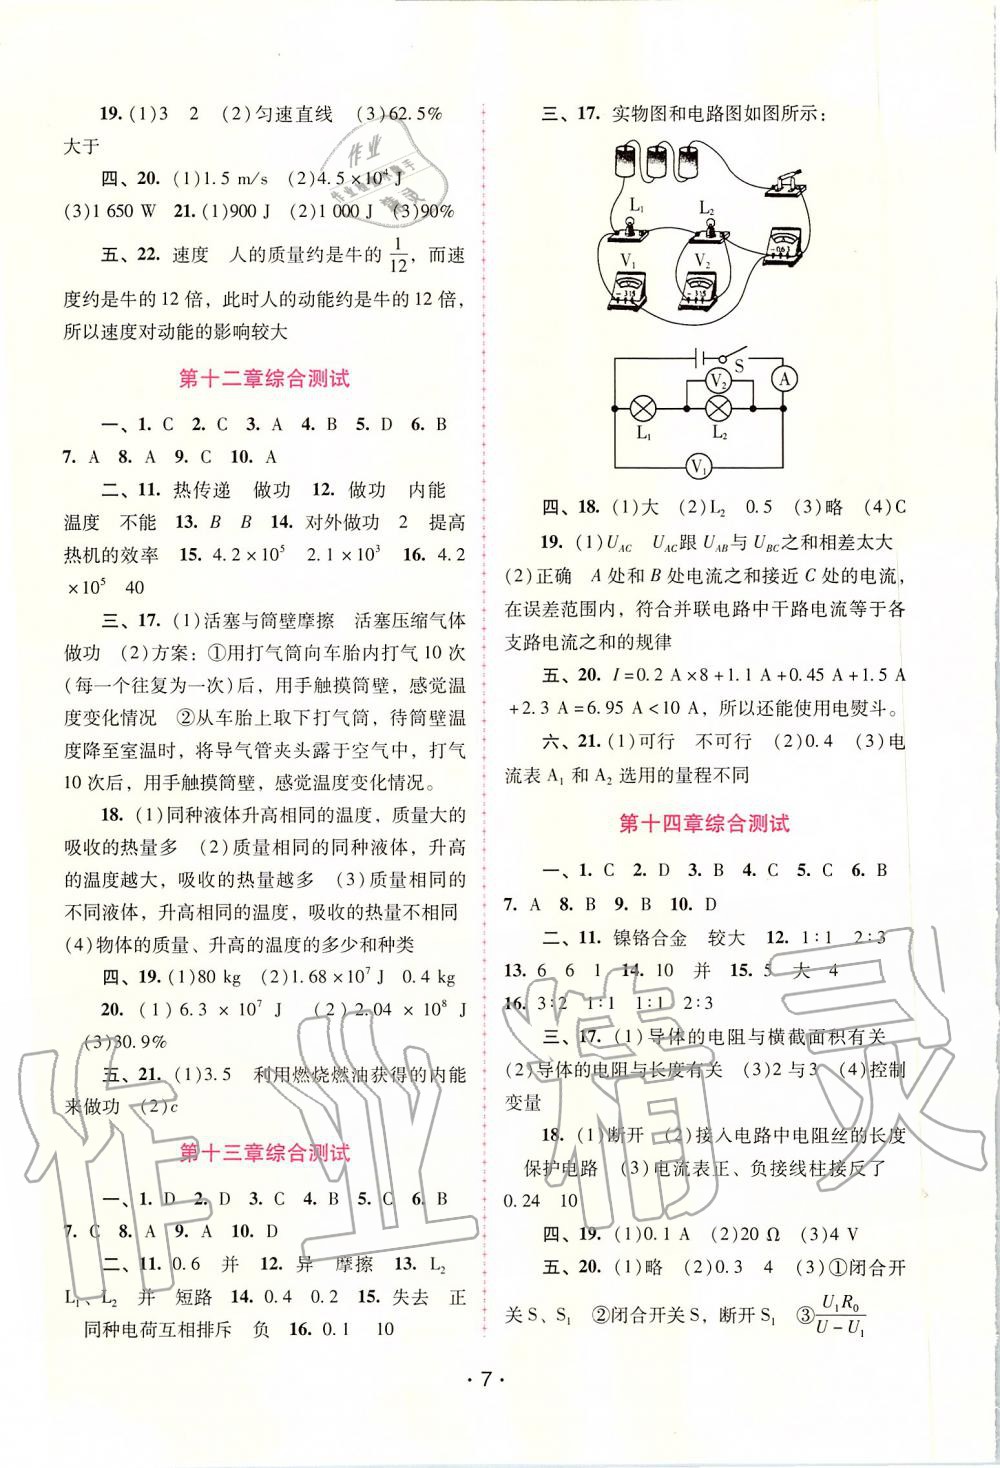 19. (1)3　2　(2)匀速直线　(3)62.5%
大于
四、20. (1)1.5 m/s　(2)4.5×10⁴ J
(3)1 650 W　21. (1)900 J　(2)1 000 J　(3)90%
五、22. 速度　人的质量约是牛的 1/12，而速
度约是牛的 12 倍，此时人的动能约是牛的 12 倍，
所以速度对动能的影响较大
第十二章综合测试
一、1. C　2. C　3. A　4. B　5. D　6. B
7. A　8. A　9. C　10. A
二、11. 热传递　做功　12. 做功　内能
温度　不能　13. B　B　14. 对外做功　2　提高
热机的效率　15. 4.2×10⁵　2.1×10³　16. 4.2
×10⁵　40
三、17. (1)活塞与筒壁摩擦　活塞压缩气体
做功　(2)方案：①用打气筒向车胎内打气 10 次
(每一个往复为一次)后，用手触摸筒壁，感觉温
度变化情况　②从车胎上取下打气筒，待筒壁温
度降至室温时，将导气管夹头露于空气中，打气
10 次后，用手触摸筒壁，感觉温度变化情况。
18. (1)同种液体升高相同的温度，质量大的
吸收的热量多　(2)质量相同的同种液体，升高
的温度越大，吸收的热量越多　(3)质量相同的
不同液体，升高相同的温度，吸收的热量不相同
(4)物体的质量、升高的温度的多少和种类
四、19. (1)80 kg　(2)1.68×10⁷ J　0.4 kg
20. (1) 6.3 × 10⁷ J　(2) 2.04 × 10⁸ J
(3)30.9%
五、21. (1)3.5　利用燃烧燃油获得的内能
来做功　(2)c
第十三章综合测试
一、1. D　2. D　3. C　4. B　5. C　6. B
7. C　8. A　9. A　10. D
二、11. 0.6　并　12. 异　摩擦　13. L₂
L₁、L₂　并　短路　14. 0.4　0.2　15. 失去　正
同种电荷互相排斥　负　16. 0.1　10
三、17. 实物图和电路图如图所示：
L₁　L₂
V₁　V₂
S
V₂　A
L₁　L₂
V₁
四、18. (1)大　(2)L₂　0.5　(3)略　(4)C
19. (1)U_AC　U_AC跟 U_AB与 U_BC之和相差太大
(2)正确　A 处和 B 处电流之和接近 C 处的电流，
在误差范围内，符合并联电路中干路电流等于各
支路电流之和的规律
五、20. I=0.2 A×8+1.1 A+0.45 A+1.5 A
+2.3 A=6.95 A<10 A，所以还能使用电熨斗。
六、21. (1)可行　不可行　(2)0.4　(3)电
流表 A₁ 和 A₂ 选用的量程不同
第十四章综合测试
一、1. C　2. D　3. B　4. C　5. C　6. B
7. A　8. B　9. B　10. D
二、11. 镍铬合金　较大　12. 1∶1　2∶3
13. 6　6　1　14. 10　并　15. 5　大　4
16. 3∶2　1∶1　1∶1　2∶3
三、17. (1)导体的电阻与横截面积有关
(2)导体的电阻与长度有关　(3)2 与 3　(4)控制
变量
18. (1)断开　(2)接入电路中电阻丝的长度
保护电路　(3)电流表正、负接线柱接反了
0.24　10
四、19. (1)0.1 A　(2)20 Ω　(3)4 V
五、20. (1)略　(2)0.3　4　(3)①闭合开
关 S、S₁　②闭合开关 S，断开 S₁　③U₁R₀/(U－U₁)
· 7 ·
作业精灵